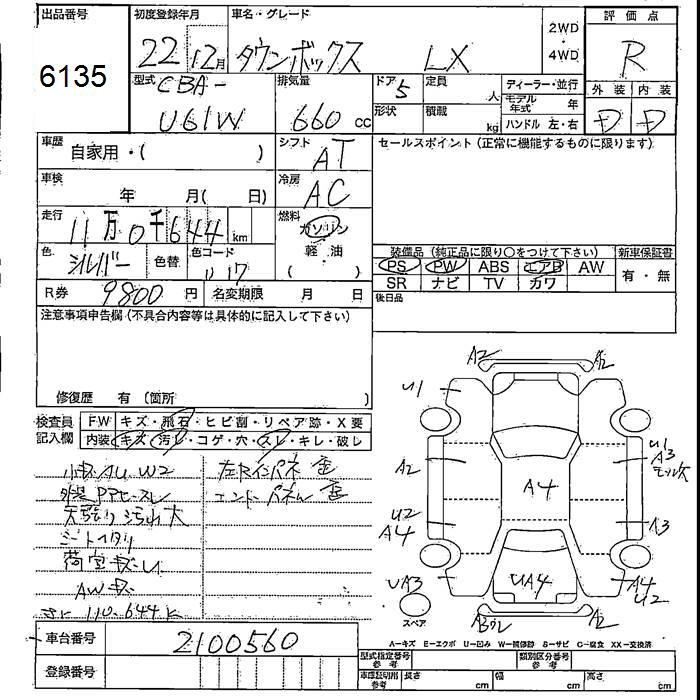 出品番号
6135
初度登録年月
22 12月
車名・グレード
タウンボックス LX
2WD
・
4WD
評価点
R
外装 内装
D D
型式
CBA-
U61W
排気量
660 cc
ドア 5
定員 人
形状
積載 kg
ディーラー・並行
モデル年式 年
ハンドル 左・右
車歴
自家用・( )
シフト
AT
セールスポイント (正常に機能するものに限ります)
車検
年 月( 日)
冷房
AC
走行
11万0千644 km
燃料
ガソリン
軽・油
( )
色
シルバー
色替
色コード
U17
装備品 (純正品に限り○をつけて下さい)
新車保証書
PS PW ABS エアB AW
有・無
SR ナビ TV カワ
R券 9800 円
名変期限 月 日
後日品
注意事項申告欄 (不具合内容等は具体的に記入して下さい)
修復歴 有 (箇所 )
検査員記入欄
FW キズ・飛石・ヒビ割・リペア跡・X要
内装 キズ・汚レ・コゲ・穴・スレ・キレ・破レ
小キズ AU W2
天張り汚れ大
荷室キズU
AWキズ
110.644K
左Rインパネ歪
エンドパネル歪
A2
A2
U1
A2
U2
A4
UA3
スペア
A4
UA4
U1
A3
A3
A4
U2
A2
A-キズ E-エクボ U-凹み W-補修跡 S-サビ C-腐食 XX-交換済
車台番号 2100560
登録番号
型式指定番号
参考
類別区分番号
参考
車庫証明用
参考
長さ cm
幅 cm
高さ cm